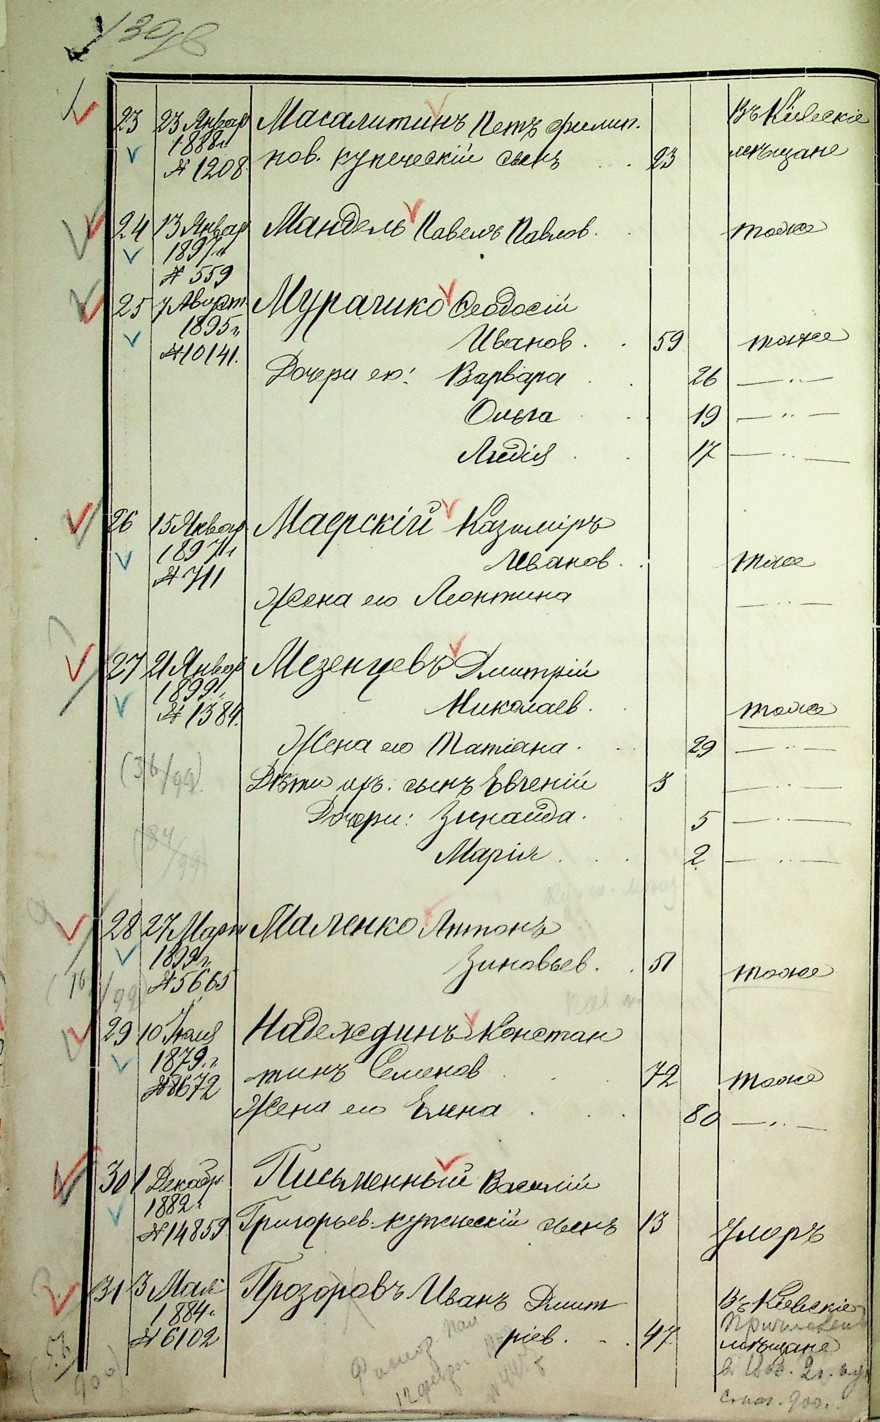 139в
23 23 Январ Масалитинъ Петъ Филип. Въ Кіевскіе
1888 г. нов. купеческій сынъ 23 мѣщане
№ 1208
24 13 Январ Мандель Павелъ Павлов. тоже
1897 г.
№ 559
25 7 Август Мурашко Ѳеодосій
1895 г. Иванов. 59 тоже
№ 10141.
Дочери его: Варвара 26 — „ —
Ольга 19 — „ —
Лидія 17 — „ —
26 15 Январ Маерскій Казиміръ
1897 г. Иванов. тоже
№ 711
Жена его Леонтина — „ —
27 21 Январ Мезенцевъ Дмитрій
1899 г. Николаев. тоже
№ 1384.
Жена его Татіана. 29 — „ —
(36/99) Дѣти ихъ: сынъ Евгеній 3 — „ —
Дочери: Зинаида. 5 — „ —
(84/99) Марія 2 — „ —
28 27 Март Маленко Антонъ
1899 г. Зиновьев. 51 тоже
№ 5665
29 10 Іюля Надеждинъ Констан
1879 г. тинъ Семенов 72 тоже
№ 8672
Жена его Елена 80 — „ —
30 1 Декабр Письменный Василій
1882 г.
№ 14859 Григорьев. купеческій сынъ 13 умеръ
31 3 Мая Прозоровъ Иванъ Дмит Въ Кіевскіе
1884 г.
№ 6102 ріев. 47 мѣщане